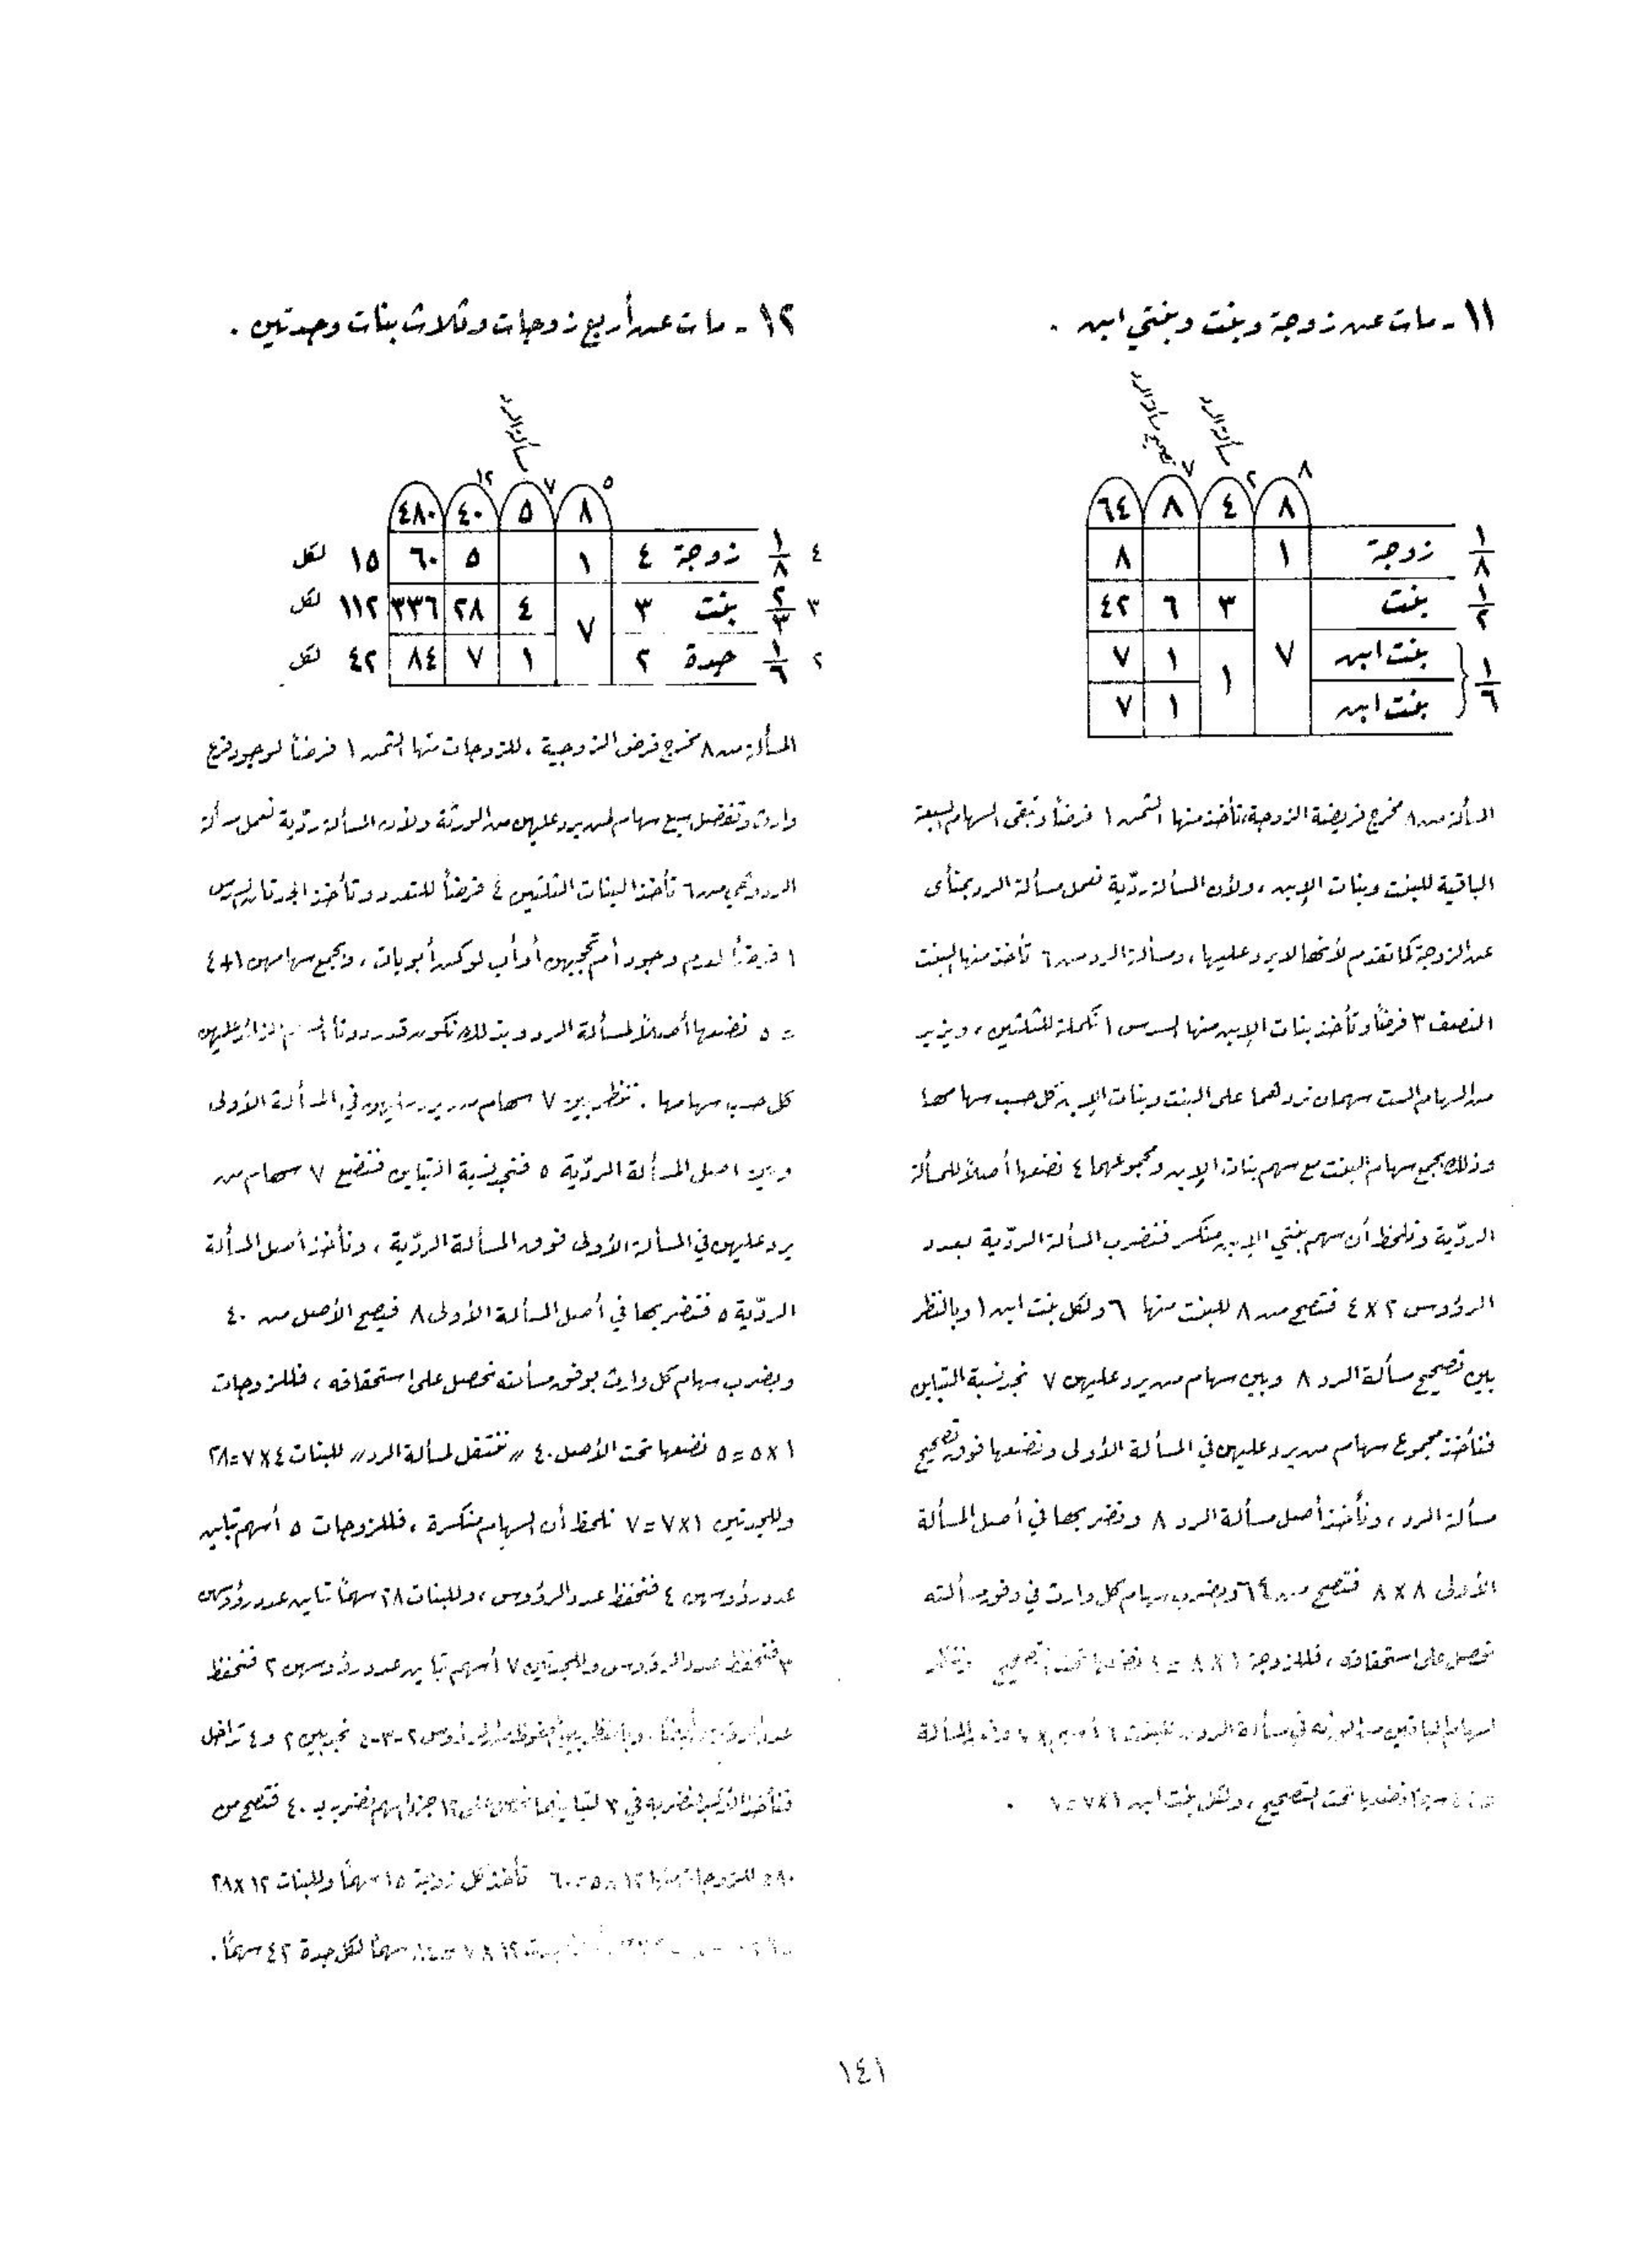 ١١ - مات عن زوجة وبنت وبنتي ابن .
مسألة الرد
تصحيح مسألة الرد
٨ ٢ ٧
٨ ٤ ٨ ٦٤
١/٨ زوجة ١ ٨
١/٢ بنت ٣ ٦ ٤٢
١/٦ بنت ابن ٧ ١ ١ ٧
بنت ابن ١ ٧
المسألة من ٨ مخرج فريضة الزوجية، تأخذ منها الثمن ١ فرضاً وتبقى السهام السبعة
الباقية للبنت وبنات الإبن ، ولأن المسألة ردّية نعمل مسألة الرد بمنأى
عن الزوجة كما تقدم لأنها لا يرد عليها ، ومسألة الرد من ٦ تأخذ منها البنت
النصف ٣ فرضاً وتأخذ بنات الإبن منها السدس ١ تكملة للثلثين ، ويزيد
من السهام الست سهمان نردهما على البنت وبنات الإبن كل حسب سهامها
وذلك بجمع سهام البنت مع سهم بنات الإبن ومجموعهما ٤ نضعها أصلاً للمسألة
الردّية ونلحظ أن سهم بنتي الإبن منكسر فنضرب المسألة الردّية بعدد
الرؤوس ٢ × ٤ فتصح من ٨ للبنت منها ٦ ولكل بنت ابن ١ وبالنظر
بين تصحيح مسألة الرد ٨ وبين سهام من يرد عليهن ٧ نجد نسبة التباين
فنأخذ مجموع سهام من يرد عليهن في المسألة الأولى ونضعها فوق تصحيح
مسألة الرد ، ونأخذ أصل مسألة الرد ٨ ونضربها في أصل المسألة
الأولى ٨ × ٨ فتصح من ٦٤ وبضرب سهام كل وارث في وفق مسألته
نحصل على استحقاقه ، فللزوجة ١ × ٨ = نضعها تحت التصحيح
سهام الباقين من الورثة في مسألة الرد للبنت ٦
نضعها تحت التصحيح ، ولكل بنت ابن ١ × ٧ = ٧ .
١٢ - مات عن أربع زوجات وثلاث بنات وجدتين .
مسألة الرد
٥ ٧ ١٢
٨ ٥ ٤٠ ٤٨٠
٤ ١/٨ زوجة ٤ ١ ٥ ٦٠ ١٥ لكل
٣ ٢/٣ بنت ٣ ٧ ٤ ٢٨ ٣٣٦ ١١٢ لكل
٢ ١/٦ جدة ٢ ١ ٧ ٨٤ ٤٢ لكل
المسألة من ٨ مخرج فرض الزوجية ، للزوجات منها الثمن ١ فرضاً لوجود فرع
وارث وتفضل سبع سهام لمن يرد عليهن من الورثة ولأن المسألة ردّية نعمل مسألة
الرد وهي من ٦ تأخذ البنات الثلثين ٤ فرضاً للتعدد وتأخذ الجدتان السدس
١ فرضاً لعدم وجود أم تحجبهن أو أب لو كن أبويات ، وبجمع سهامهن ١ + ٤
= ٥ نضعها أصلاً لمسألة الرد وبذلك نكون قد رددنا السهم الزائد عليهن
كل حسب سهامها . ننظر بين ٧ سهام من يرد عليهن في المسألة الأولى
وبين أصل المسألة الردّية ٥ فنجد نسبة التباين فنضع ٧ سهام من
يرد عليهن في المسألة الأولى فوق المسألة الردّية ، ونأخذ أصل المسألة
الردّية ٥ فنضربها في أصل المسألة الأولى ٨ فيصح الأصل من ٤٠
وبضرب سهام كل وارث بوفق مسألته نحصل على استحقاقه ، فللزوجات
١ × ٥ = ٥ نضعها تحت الأصل ٤٠ ,, ننتقل لمسألة الرد ,, للبنات ٤ × ٧ = ٢٨
وللجدتين ١ × ٧ = ٧ نلحظ أن السهام منكسرة ، فللزوجات ٥ أسهم تباين
عدد رؤوسهن ٤ فنحفظ عدد الرؤوس ، وللبنات ٢٨ سهماً تباين عدد رؤوسهن
٣ فنحفظ عدد الرؤوس وللجدتين ٧ أسهم تباين عدد رؤوسهن ٢ فنحفظ
عدد الرؤوس أيضاً . وبالنظر بين محفوظات الرؤوس ٢-٣-٤ نجد بين ٢ و٤ تداخل
فنأخذ الأكبر نضربه في ٣ لتباينهما نحصل على ١٢ جزء السهم نضربه بـ ٤٠ فتصح من
٤٨٠ للزوجات منها ١٢ × ٥ = ٦٠ تأخذ كل زوجة ١٥ سهماً وللبنات ١٢ × ٢٨
١٢ × ٧ = ٨٤ سهماً لكل جدة ٤٢ سهماً .
١٤١